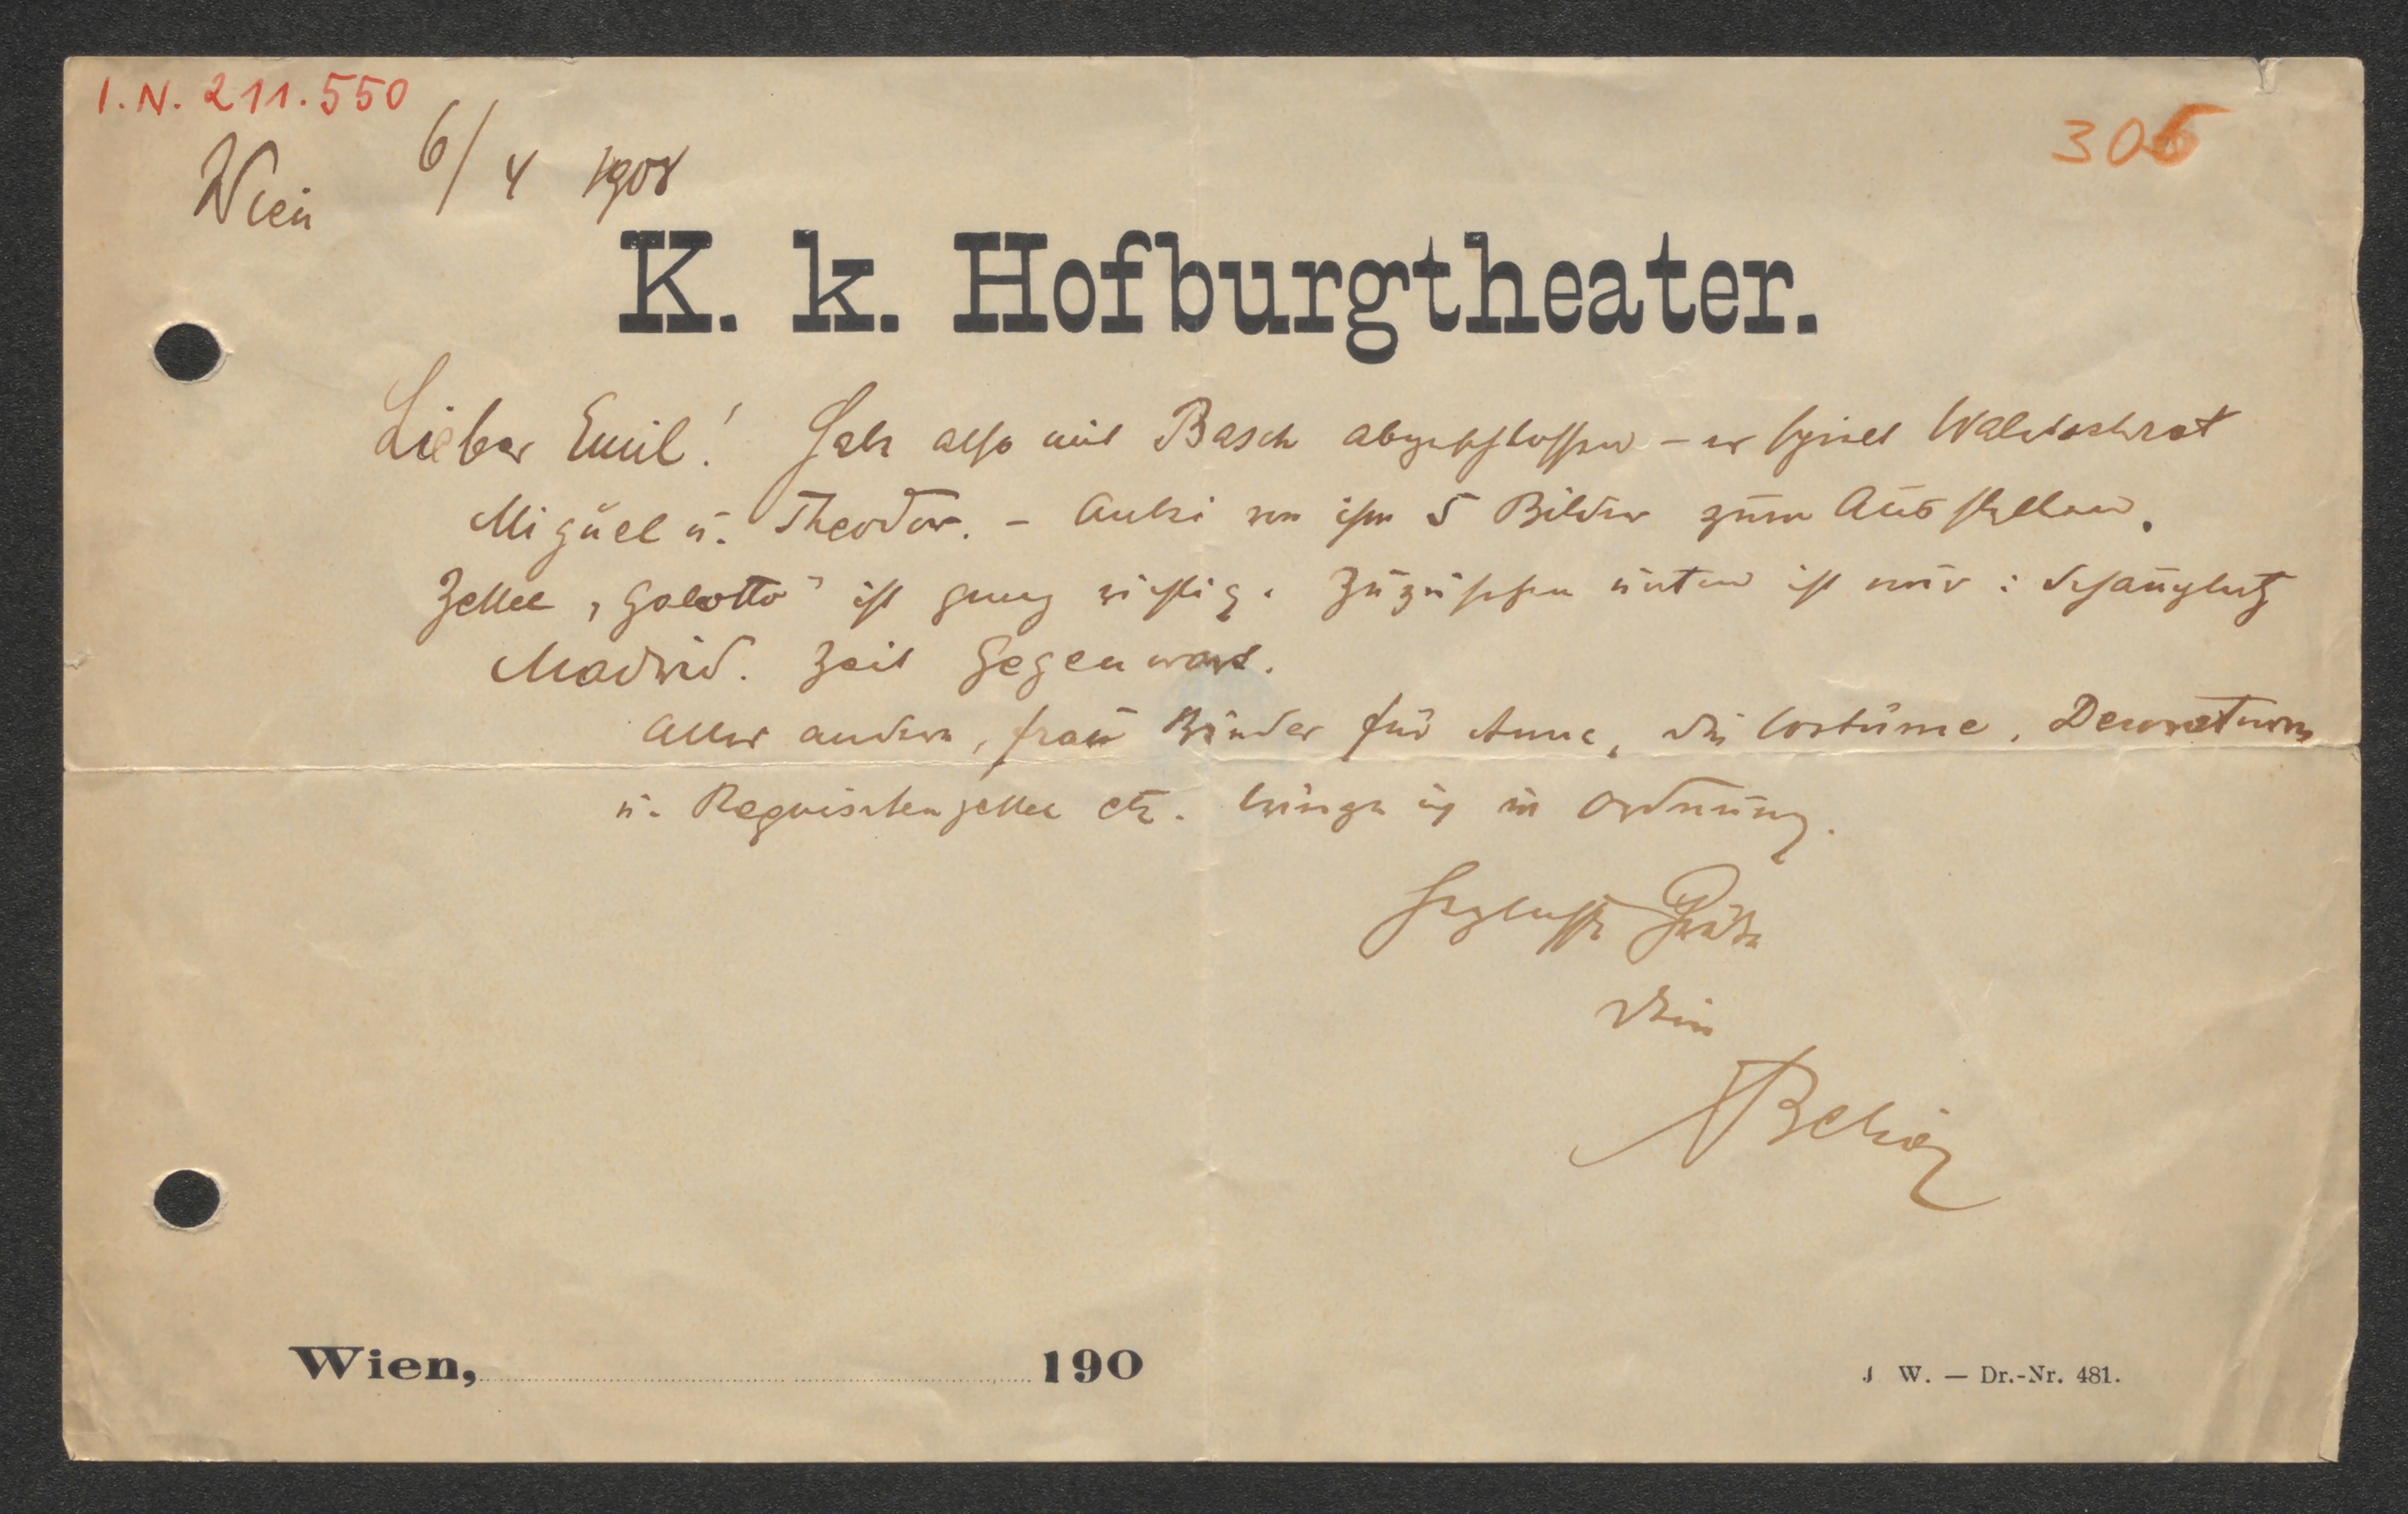 I.N. 211.550
306
Wien 6/4 1908
K. k. Hofburgtheater.
Lieber Emil! Habe also mit Basch abgeschlossen – er spielt Waldschrat
Miguel u. Theodor. – Anbei von ihm 5 Bilder zum Ausstellen.
Zettel „Galotto" ist ganz richtig. Zuzusetzen unten ist nur: Schauplatz
Madrid. Zeit Gegenwart.
Alles andere, Frau Binder für Anna, die Costüme, Decorationen
u. Requisitenzettel etc. bringe ich in Ordnung.
Herzlichste Grüße
Dein
Wien, 190
W. — Dr.-Nr. 481.